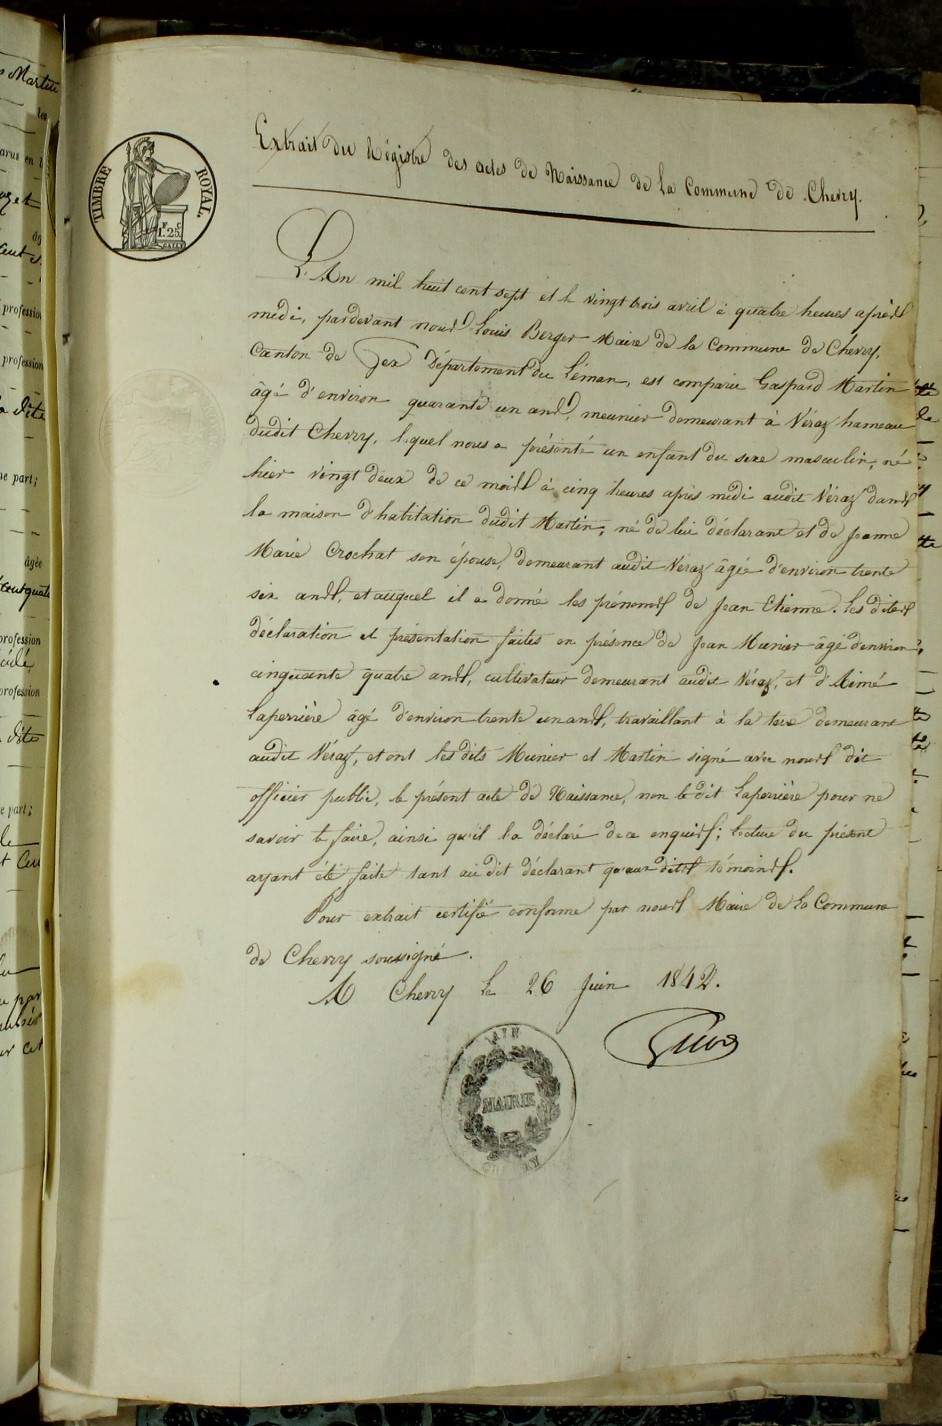 TIMBRE ROYAL.
1. 25
Extrait du Régistre des actes de Naissance de la Commune de Chevry.
L'An mil huit cent sept et le vingt trois avril à quatre heures après
midi, pardevant nous Louis Berger Maire de la Commune de Chevry,
Canton de Gex Département du Léman, est comparu Gaspard Martin
âgé d'environ quarante un ans, meunier demeurant à Véraz hameau
dudit Chevry, lequel nous a présenté un enfant du sexe masculin, né
hier vingt deux de ce mois à cinq heures après midi audit Véraz dans
la maison d'habitation dudit Martin, né de lui déclarant et de Jeanne
Marie Crochat son épouse, demeurant audit Véraz âgée d'environ trente
six ans, et auquel il a donné les prénoms de Jean Etienne. Les dites
déclaration et présentation faites en présence de Jean Munier âgé d'environ
cinquante quatre ans, cultivateur demeurant audit Véraz, et d'Aimé
Laperrière âgé d'environ trente un ans, travaillant à la terre demeurant
audit Véraz, et ont les dits Munier et Martin signé avec nous dit
officier public, le présent acte de Naissance, non le dit Laperrière pour ne
savoir le faire, ainsi qu'il l'a déclaré de ce enquis; lecture du présent
ayant été faite tant au dit déclarant qu'aux dits témoins.
Pour extrait certifié conforme par nous Maire de la Commune
de Chevry soussigné.
A Chevry le 26 Juin 1842.
AIN
MAIRIE